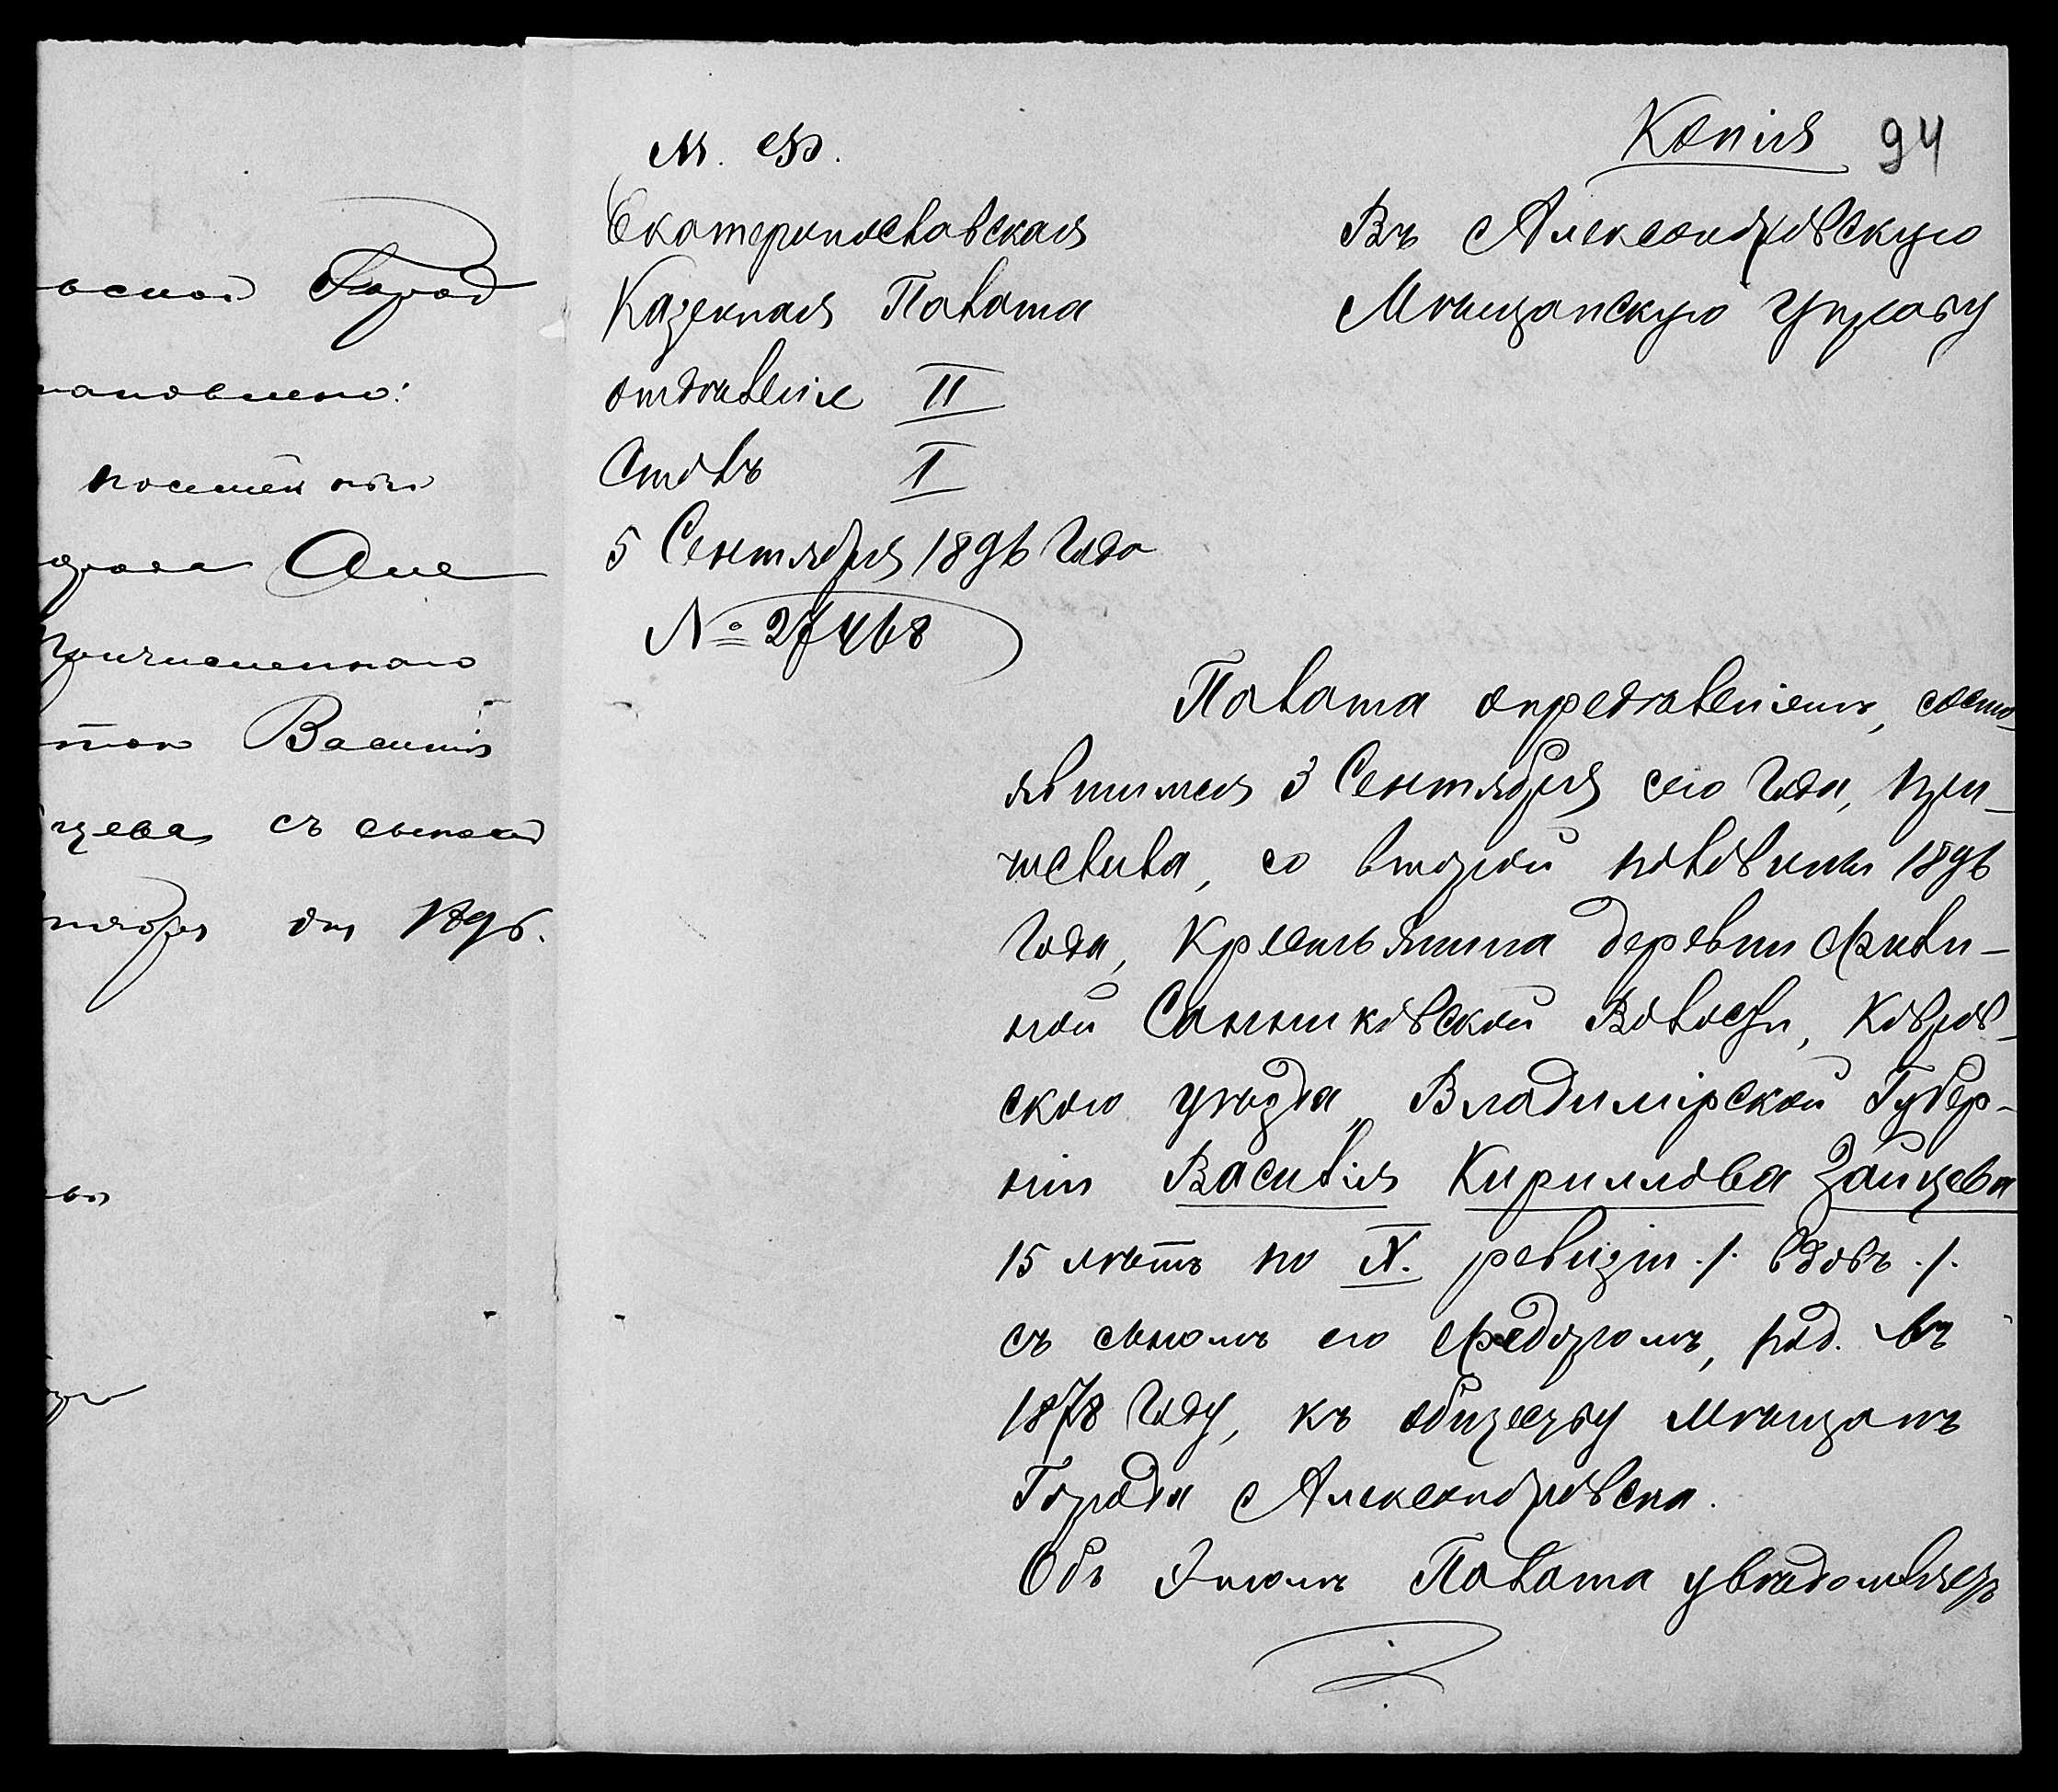 ьской Город
тановлено:
посемейный
города Алек
Причисленного
щанъ Василія
йцева съ сыномъ
тября дня 1896.
Копія 94
М. Ф.
Екатеринославская
Казенная Палата
отдѣленіе II
Столъ I
5 Сентября 1896 года
№ 27468
Въ Александровскую
Мѣщанскую Управу
Палата опредѣленіемъ, состо-
явшимся 3 Сентября сего года, при-
числила, со второй половины 1896
года, крестьянина деревни Фили-
ной Санниковской Волости, Ковров-
скаго уѣзда, Владимірской Губер-
ніи Василія Кириллова Зайцева
15 лѣтъ по X. ревизіи ./. вдовъ ./.
съ сыномъ его Федоромъ, род. въ
1878 году, къ обществу мѣщанъ
Города Александровска.
Объ этомъ Палата увѣдомляетъ